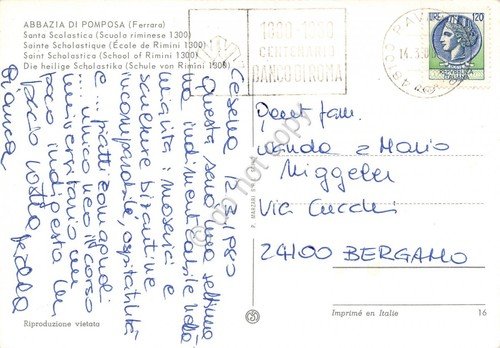 ABBAZIA DI POMPOSA (Ferrara)
Santa Scolastica (Scuola riminese 1300)
Sainte Scholastique (École de Rimini 1300)
Saint Scholastica (School of Rimini 1300)
Die heilige Scholastika (Schule von Rimini 1300)
1880-1980
CENTENARIO
BANCO DI ROMA
RAV
48100
14.3.80
LIRE 120
REPVBBLICA
ITALIANA
Cesena 12.3.1980
Questa sarà una settima
na indimenticabile nella
mia vita: i mosaici e
bizantine
incomparabile, ospitalità
e piatti romagnoli
unico neo il corso
universitario un
poco indigesto. Un
bacio vostra
Bianca
Gent. fam.
Wanda e Mario
Miggeler
Via Cucchi
24100 BERGAMO
do not copy
Riproduzione vietata
Imprimé en Italie
16